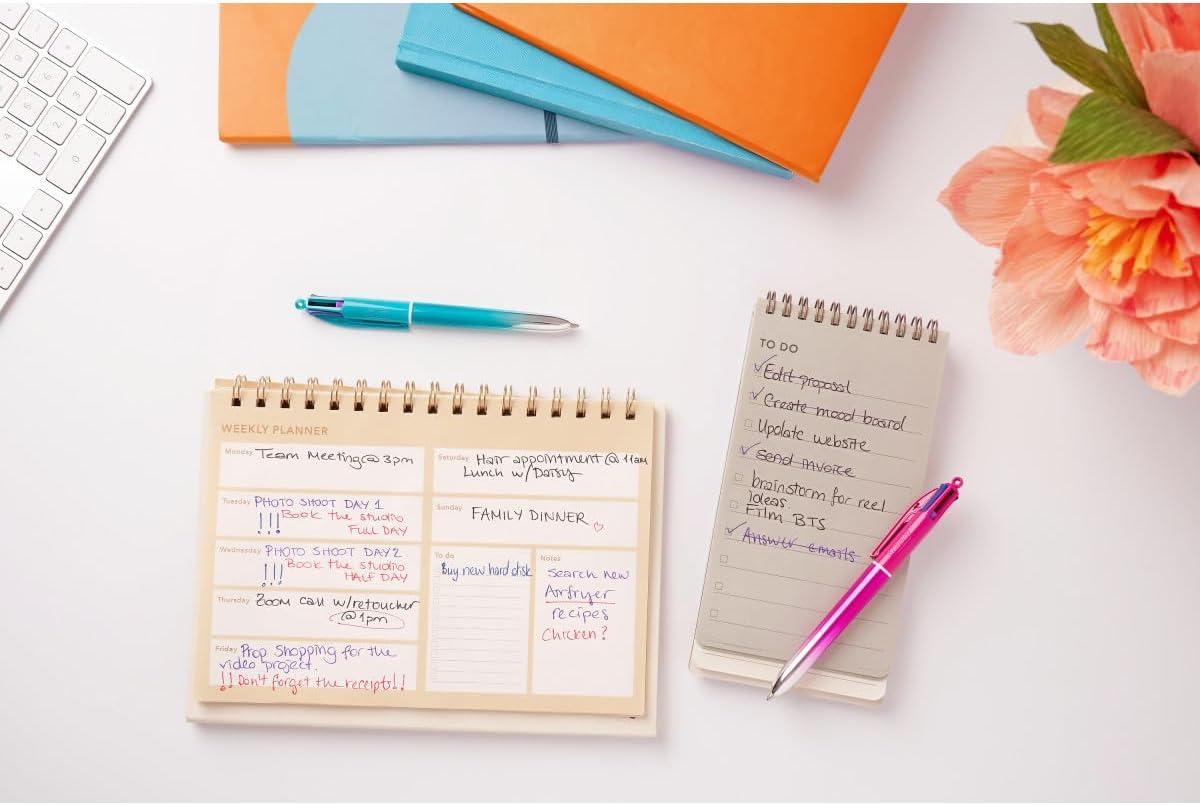 WEEKLY PLANNER
Monday Team Meeting @ 3pm
Tuesday PHOTO SHOOT DAY 1
!!! Book the studio
FULL DAY
Wednesday PHOTO SHOOT DAY 2
!!! Book the studio
HALF DAY
Thursday Zoom call w/retoucher
@1pm
Friday Prop Shopping for the
video project.
!! Don't forget the receipts!!
Saturday Hair appointment @ 11am
Lunch w/Daisy
Sunday FAMILY DINNER
To do
Buy new hard disk
Notes
search new
Airfryer
recipes
Chicken?
TO DO
Edit proposal
Create mood board
Update website
Send invoice
brainstorm for reel
ideas.
Film BTS
Answer emails